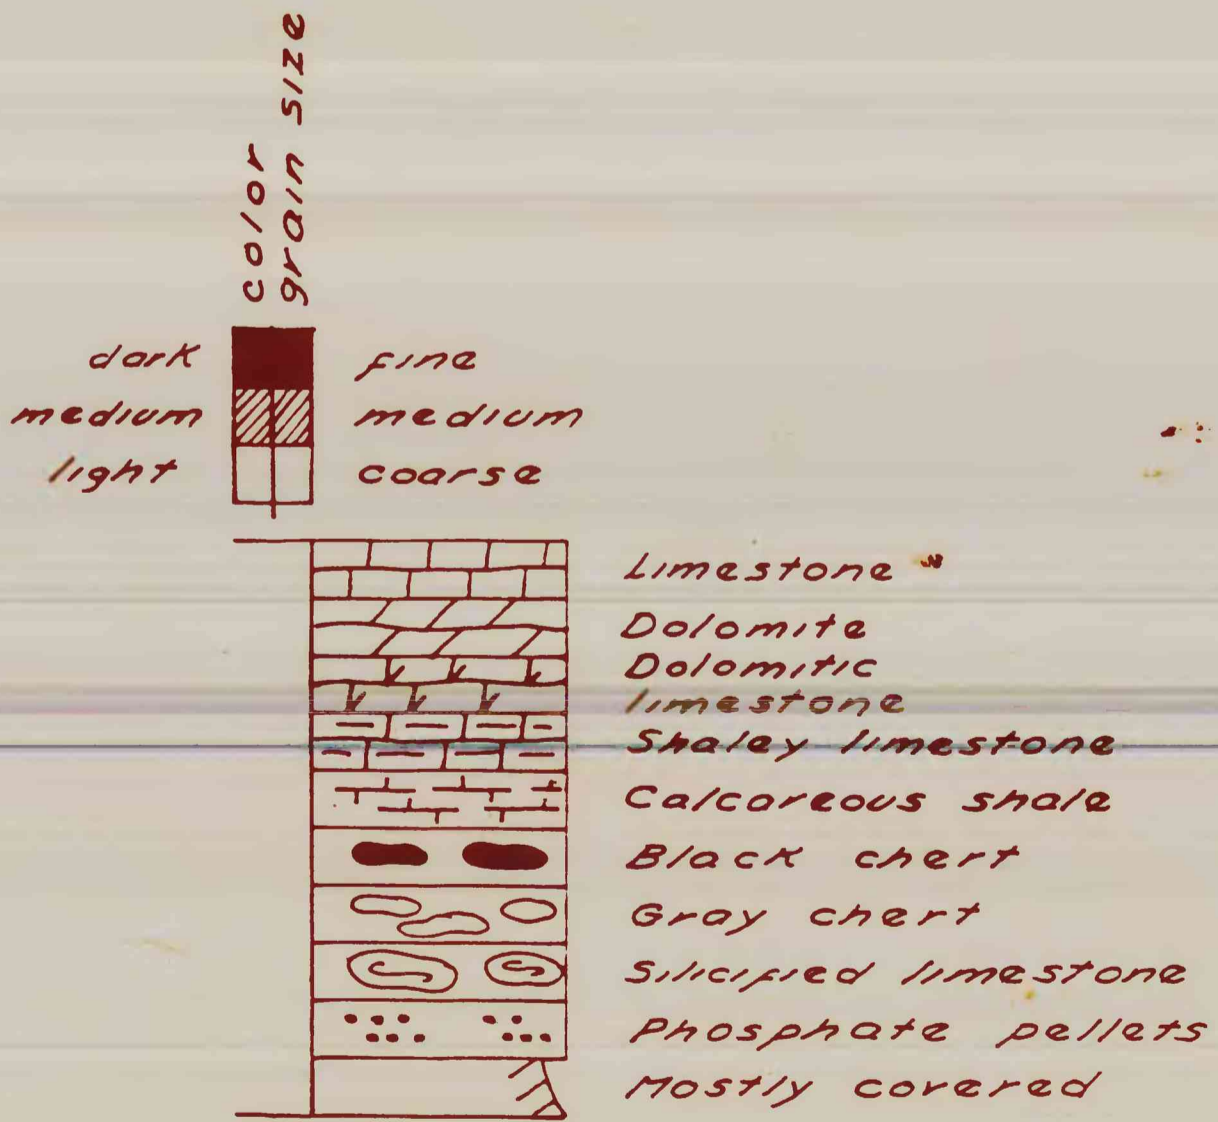 color
grain size
dark fine
medium medium
light coarse
Limestone
Dolomite
Dolomitic
limestone
Shaley limestone
Calcareous shale
Black chert
Gray chert
Silicified limestone
Phosphate pellets
Mostly covered